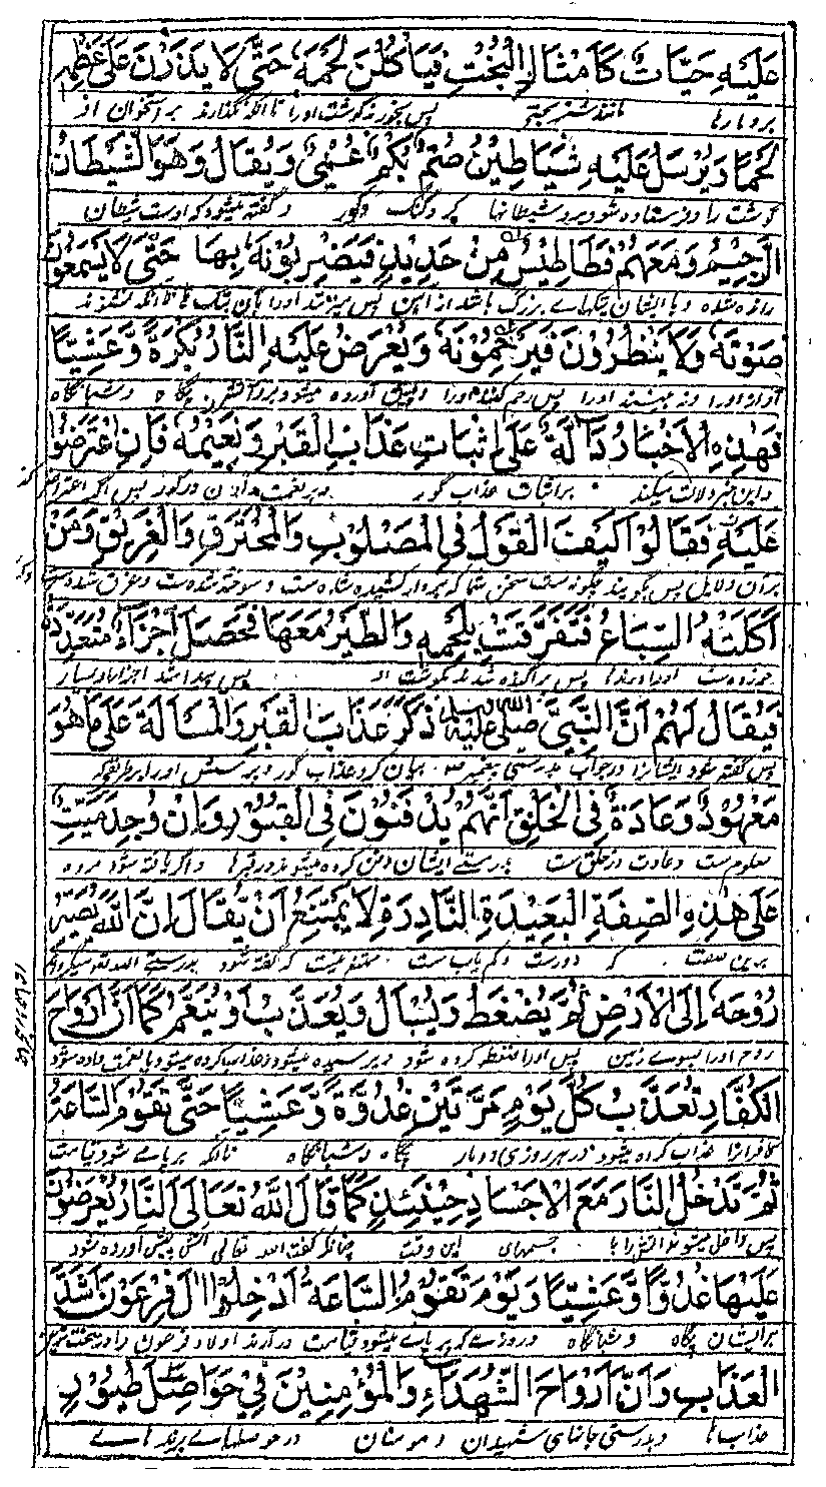 عَلَيْهِ حَيَّاتٌ كَأَمْثَالِ الْبُخْتِ فَيَأْكُلْنَ لَحْمَهُ حَتَّى لَا يَذَرْنَ عَلَى عَظْمِهِ
برو مارها مانند شتر بختی پس بخورند گوشت او را تا آنکه نگذارند بر استخوان او
لَحْمًا وَيُرْسَلُ عَلَيْهِ شَيَاطِيْنُ صُمٌّ بُكْمٌ عُمْيٌ وَيُقَالُ وَهُوَ الشَّيْطَانُ
گوشت را و فرستاده شود برو شیطانها کر و گنگ و کور و گفته میشود که اوست شیطان
الرَّجِيْمُ وَمَعَهُمْ فَطَاطِيْسُ مِنْ حَدِيْدٍ فَيَضْرِبُوْنَهُ بِهَا حَتَّى لَا يَسْمَعُوْنَ
رانده شده و با ایشان پتکهای بزرگ باشد از آهن پس میزنند او را بآن پتک تا آنکه نشنوند
صَوْتَهُ وَلَا يَنْظُرُوْنَ فَيَرْحَمُوْنَهُ وَيُعْرَضُ عَلَيْهِ النَّارُ بُكْرَةً وَّعَشِيًّا
آواز او را و نه بینند او را پس رحم کنند او را و پیش آورده میشود برو آتش پگاه و شبانگاه
فَهٰذِهِ الْاَخْبَارُ دَالَّةٌ عَلَى اِثْبَاتِ عَذَابِ الْقَبْرِ وَنَعِيْمِهِ فَاِنِ اعْتَرَضُوْا
و این خبر دلالت میکند بر اثبات عذاب گور و بر نعمت دادن در گور پس اگر اعتراض کنند
عَلَيْهِ فَقَالُوْا كَيْفَ الْقَوْلُ فِي الْمَصْلُوْبِ وَالْمُحْتَرَقِ وَالْغَرِيْقِ وَمَنْ
بر آن دلایل پس گویند چگونه ست سخن شما که بر دار کشیده شده ست و سوخته شده ست و غرق شده ست و کسی
اَكَلَتْهُ السِّبَاعُ فَتَفَرَّقَتْ بِلَحْمِهِ وَالطَّيْرُ مَعَهَا فَحَصَلَ اَجْزَاءٌ مُتَعَدِّدَةٌ
خورده ست او را درندها پس پراگنده شد گوشت او پس پیدا شد اجزاء بسیار
فَيُقَالُ لَهُمْ اَنَّ النَّبِيَّ صَلَّى اللهُ عَلَيْهِ وَسَلَّمَ ذَكَرَ عَذَابَ الْقَبْرِ وَالْمَسْأَلَةَ عَلَى مَا هُوَ
پس گفته شود ایشانرا در جواب بدرستی پیغمبر ص بیان کرد عذاب گور و پرسش او را بر طریقیکه
مَعْهُوْدٌ وَعَادَةٌ فِي الْخَلْقِ اَنَّهُمْ يُدْفَنُوْنَ فِي الْقُبُوْرِ وَاِنْ وُجِدَ مَيِّتٌ
معلوم ست و عادت در خلق ست بدرستی ایشان دفن کرده میشوند در قبرها و اگر یافته شود مرده
عَلَى هٰذِهِ الصِّفَةِ الْبَعِيْدَةِ النَّادِرَةِ لَا يَمْتَنِعُ اَنْ يُّقَالَ اِنَّ اللهَ يُصَيِّرُ
برین صفت که دورست و کم یاب ست ممتنع نیست که گفته شود بدرستی الله تعالی میگرداند
رُوْحَهُ اِلَى الْاَرْضِ ثُمَّ يُضْغَطُ وَيُسْأَلُ وَيُعَذَّبُ اَوْ يُنَعَّمُ كَمَا اَنَّ اَرْوَاحَ
روح او را بسوی زمین پس او را ضغطه کرده شود و پرسیده میشود و عذاب کرده میشود یا نعمت داده شود
الْكُفَّارِ تُعَذَّبُ كُلَّ يَوْمٍ مَرَّتَيْنِ غُدْوَةً وَّعَشِيًّا حَتَّى تَقُوْمَ السَّاعَةُ
کافرانرا عذاب کرده میشود در هر روزی دو بار پگاه و شبانگاه تا آنکه بر پای شود قیامت
ثُمَّ تَدْخُلُ النَّارَ مَعَ الْاَجْسَادِ حِيْنَئِذٍ كَمَا قَالَ اللهُ تَعَالَى اَلنَّارُ يُعْرَضُوْنَ
پس داخل میشوند آتش را با جسمهای این وقت چنانکه گفت الله تعالی آتش پیش آورده شود
عَلَيْهَا غُدُوًّا وَّعَشِيًّا وَيَوْمَ تَقُوْمُ السَّاعَةُ اَدْخِلُوْا اٰلَ فِرْعَوْنَ اَشَدَّ
بر ایشان پگاه و شبانگاه و روزیکه بر پای میشود قیامت در آرند اولاد فرعون را در سخت ترین
الْعَذَابِ وَاَنَّ اَرْوَاحَ الشُّهَدَاءِ وَالْمُؤْمِنِيْنَ فِيْ حَوَاصِلِ طُيُوْرٍ
عذابها و بدرستی جانهای شهیدان و مومنان در حوصلهای پرندهای